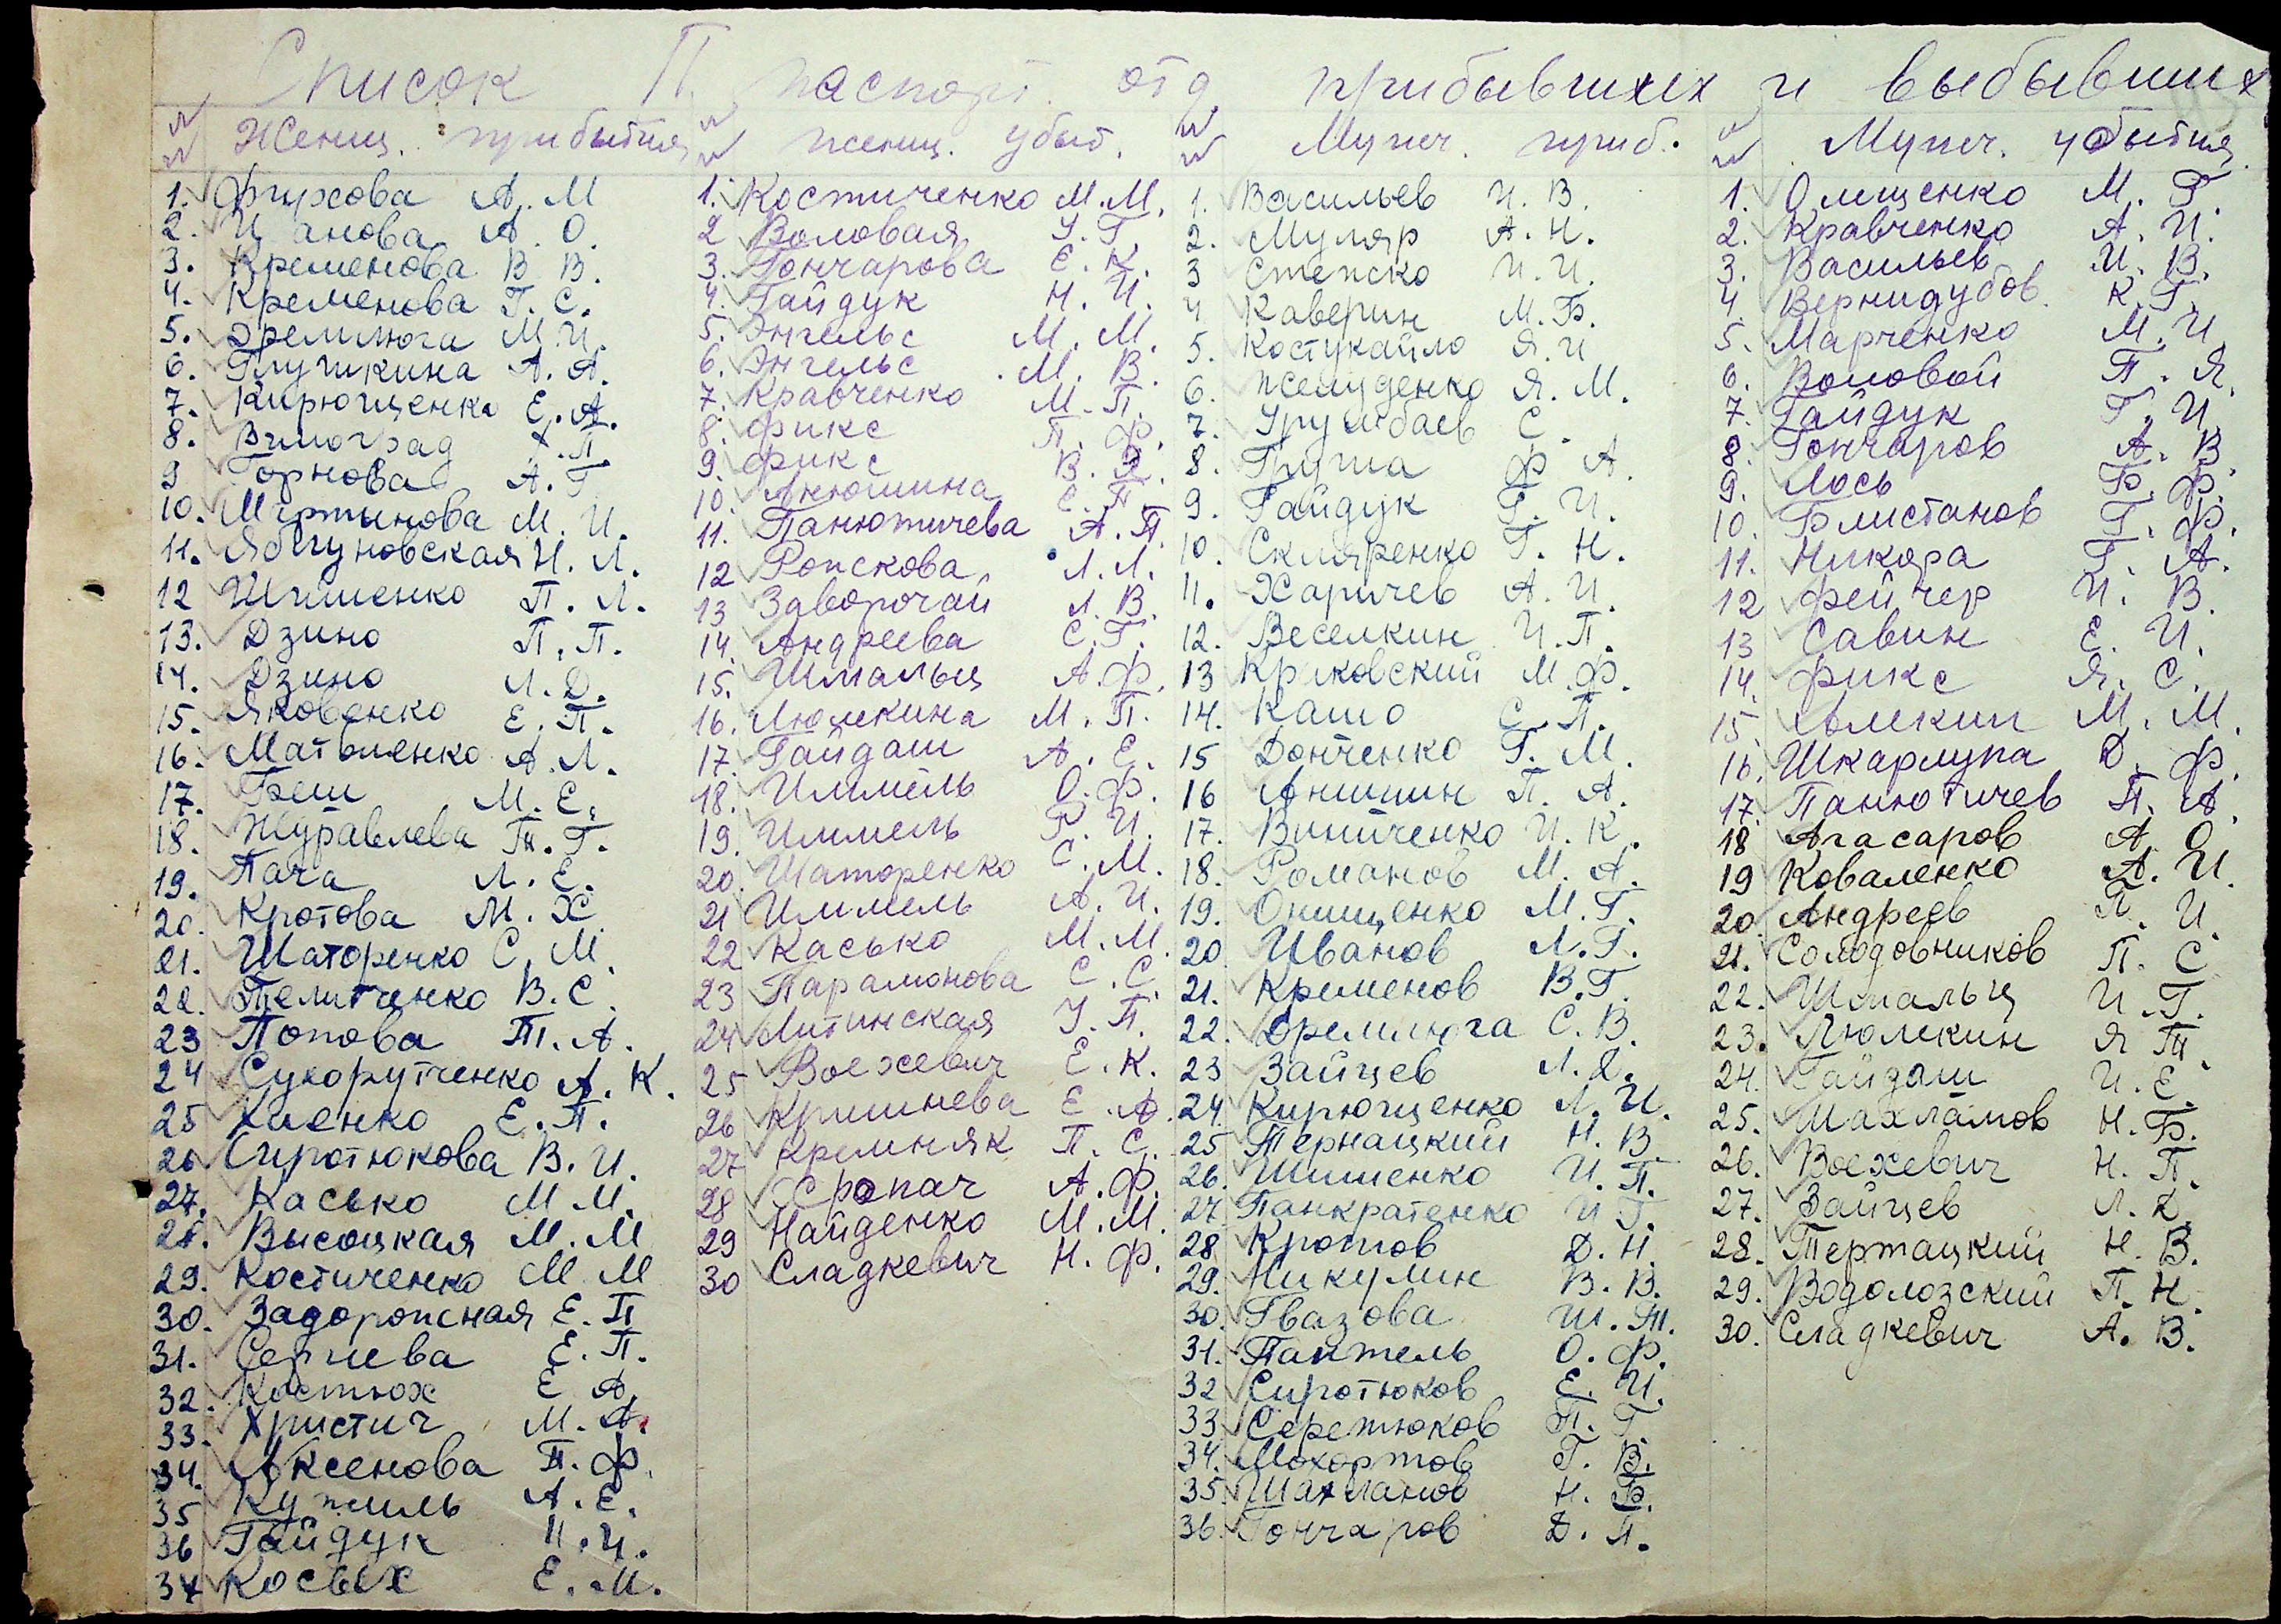 Список П. паспорт. отд. прибывших и выбывших
№ Женщ. прибытия
1. Фурсова А. М
2. И анова А. О.
3. Кременова В В.
4. Кременова Г. С.
5. Дремлюга М. И.
6. Глушкина А. А.
7. Кирющенко Е. А.
8. Виноград Х. П.
9 Горнова А. Г
10. Мартынова М. И.
11. Ябчуновская И. Л.
12 Шишенко П. Л.
13. Дзино П. П.
14. Дзино Л. Д.
15. Яковенко Е. П.
16. Матвиенко А. Л.
17. Беш М. Е.
18. Журавлева Т. Г.
19. Пача Л. Е.
20. Кротова М. Х.
21. Шаторенко С. М.
22. Телитченко В. С.
23 Попова Т. А.
24 Сухорутченко А. К.
25 Хиенко Е. П.
26 Сиротюкова В. И.
27. Касько М М.
28. Высоцкая М. М
29. Костиченко М М
30. Задорожная Е. П
31. Сериева Е. П.
32. Костюх Е А.
33. Христич М. А.
34. Аксенова П. Ф.
35 Кужиль А. Е.
36 Гайдук Н. И.
37 Косых Е. М.
№ женщ. убыт.
1. Костиченко М. М.
2 Воловая У. Г.
3. Гончарова Е. К.
4. Гайдук Н. И.
5. Энгельс М. М.
6. Энгельс М. В.
7. Кравченко М. П.
8. Фикс П. Ф.
9. Фикс В. Я.
10. Акюшина Е. П.
11. Панютичева А. П.
12 Рожкова Л. Л.
13 Заворочай Л. В.
14. Андреева С. Г.
15. Шмальц А. Ф.
16. Люлекина М. П.
17. Гайдаш А. Е.
18. Иммель О. Ф.
19. Иммель Р. И.
20. Шаторенко С. М.
21 Иммель А. И.
22 Касько М. М.
23 Парамонова С. С.
24 Литинская У. П.
25 Воехевич Е. К.
26 Кришнева Е. А.
27 Кремняк П. С.
28 Сропач А. Ф.
29 Найденко М. М.
30 Сладкевич Н. Ф.
№ Мужч. приб.
1. Васильев И. В.
2. Муляр А. Н.
3 Степско И. И.
4 Каверин М. Б.
5. Костукайло Я. И
6. Желуденко Я. М.
7. Урумбаев С.
8. Груша Ф А
9. Гайдук Г. И.
10. Скляренко Г. Н.
11. Харичев А. И.
12. Веселкин И. П.
13 Крковский М. Ф.
14. Кашо С. П.
15 Донченко Г. М.
16 Анишин П. А.
17. Винниченко И. К.
18. Романов М. А.
19. Онищенко М. Г.
20. Иванов Л. Г.
21. Кременов В. Г.
22. Дремлюга С. В.
23 Зайцев Л. Д.
24. Кирющенко Л. И.
25 Тернацкий Н. В.
26. Шишенко И. П.
27. Панкратенко И Г.
28. Кротов Д. Н.
29. Никулин В. В.
30. Гвазова Ш. Т.
31. Пантель О. Ф.
32 Сиротюков Е. И.
33. Серетюков П. Г.
34. Мохортов Г. В.
35. Шахламов Н. Б.
36. Гончаров Д. П.
№ Мужч. убытия
1. Онищенко М. Г.
2. Кравченко А. И.
3. Васильев И. В.
4. Вернидубов К. Г.
5. Марченко М. И
6. Воловой П. Я.
7. Гайдук Г. И.
8. Гончаров А. В
9. Лось Б. Ф.
10. Блистанов Г. Ф.
11. Никора Г. А.
12 Фейчер И. В.
13 Савин Е. И.
14. Фикс Я. С.
15. М. М.
16. Шкарлупа Д. Ф.
17. Панютичев П. А.
18 Агасаров А О.
19 Коваленко А. И.
20 Андреев П. И.
21. Солодовников П. С
22. Шмальц И. Г.
23. Люлекин Я Т.
24. Гайдаш И. Е.
25. Шахламов Н. Б.
26. Воехевич Н. П.
27. Зайцев Л. Д.
28. Тертацкий Н. В.
29. Водолозский П. Н.
30. Сладкевич А. В.